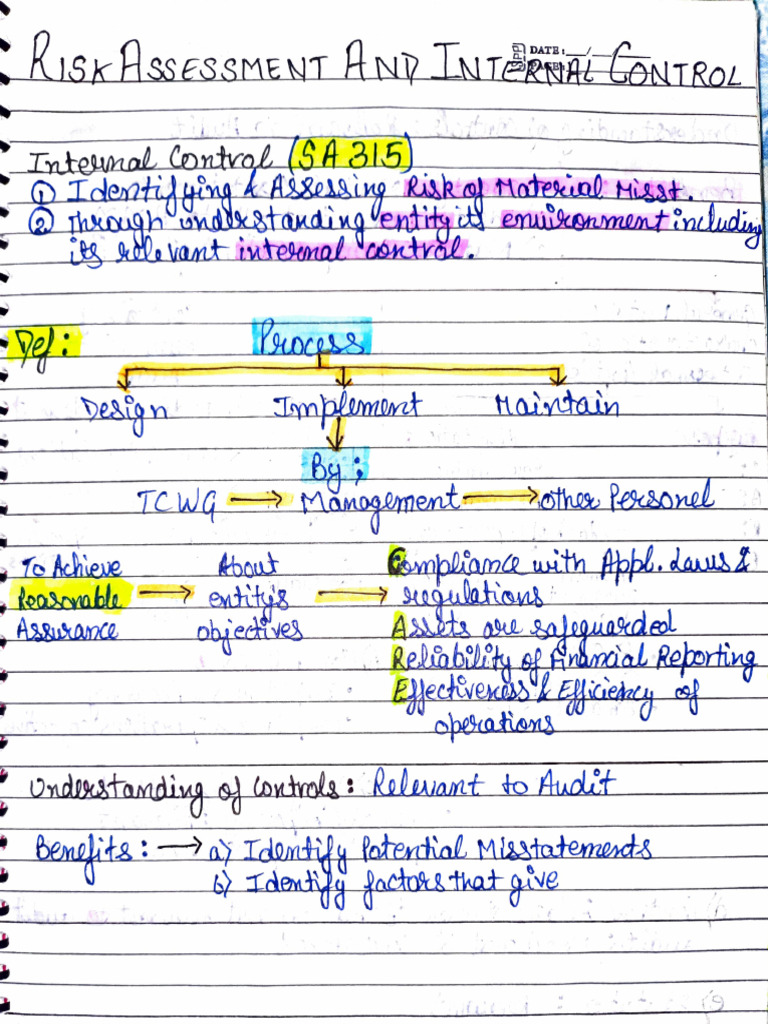 DATE: __/__/__
PAGE:
RISK ASSESSMENT AND INTERNAL CONTROL
Internal Control (SA 315)
① Identifying & Assessing Risk of Material Misst.
② Through understanding entity its environment including
its relevant internal control.
Def:
Process
Design Implement Maintain
By;
TCWG → Management → other Personel
To Achieve → About → Compliance with Appl. Laws &
Reasonable entity's regulations
Assurance objectives Assets are safeguarded
Reliability of Financial Reporting
Effectiveness & Efficiency of
operations
Understanding of Controls: Relevant to Audit
Benefits: → a) Identify Potential Misstatements
b) Identify factors that give